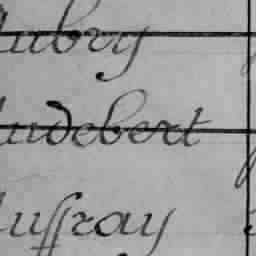 Aubry
Audebert
Auffray